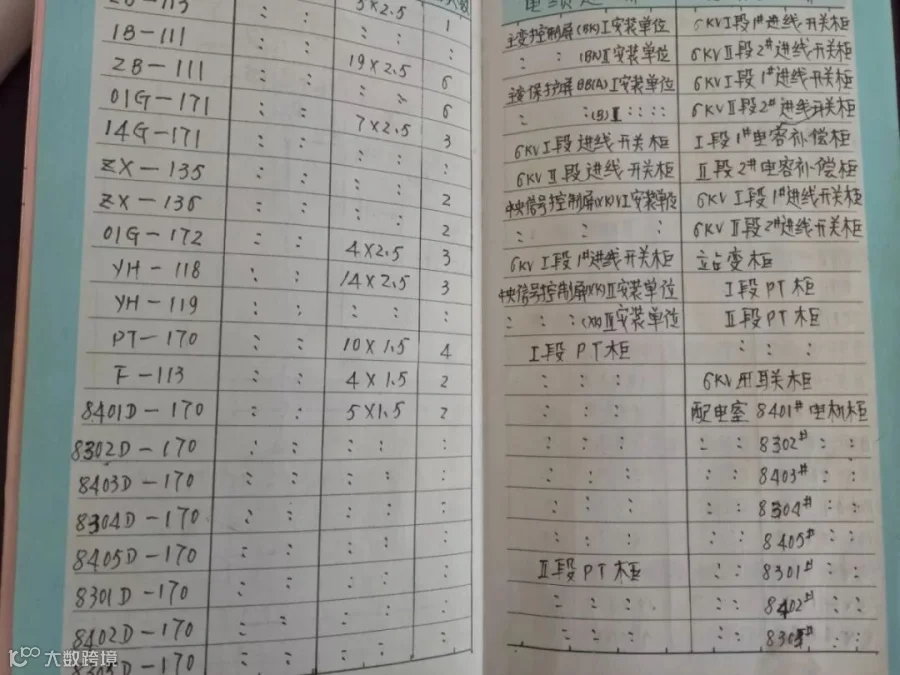 3×2.5 1
1B-111 : : : : :
2B-111 : : 19×2.5 6
01G-171 : : : : 6
14G-171 : : 7×2.5 3
ZX-135 : : : : :
ZX-136 : : : : 2
01G-172 : : : : 2
YH-118 : : 4×2.5 3
YH-119 : : 14×2.5 3
PT-170 : : : : :
F-113 : : 10×1.5 4
8401D-170 : : 4×1.5 2
8302D-170 : : 5×1.5 2
8403D-170 : : : : :
8304D-170 : : : : :
8405D-170 : : : : :
8301D-170 : : : : :
8402D-170 : : : : :
-170 : : : : :
主变控制屏(BK)I安装单位 6KVI段1#进线开关柜
: : (BK)II安装单位 6KVII段2#进线开关柜
主变保护屏BB(A)I安装单位 6KVI段1#进线开关柜
: :(B)II : : : : 6KVII段2#进线开关柜
6KVI段进线开关柜 I段1#电容补偿柜
6KVII段进线开关柜 II段2#电容补偿柜
中央信号控制屏(XK)I安装单位 6KVI段1#进线开关柜
: : : 6KVII段2#进线开关柜
6KVI段1#进线开关柜 站变柜
中央信号控制屏(XK)II安装单位 I段PT柜
: : :(XK)II安装单位 II段PT柜
I段PT柜 : : :
: : : 6KV 联柜
: : : 配电室8401#电机柜
: : : : : 8302# : :
: : : : : 8403# : :
: : : : : 8304# : :
: : : : : 8405# : :
II段PT柜 : : 8301# : :
: : : : : 8402# : :
: : : : : : :
大数跨境